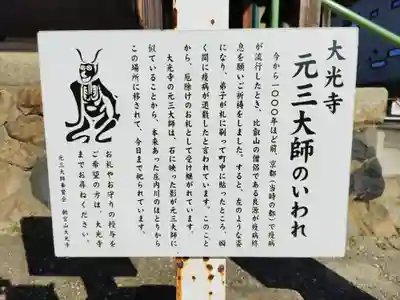 大光寺
元三大師のいわれ
今から一〇〇〇年ほど前、京都(当時の都)で疫病
が流行したとき、比叡山の僧侶である良源が疫病終
息を願いご祈祷をしました。すると、左のような姿
になり、弟子が札に刷って町中に貼ったところ、瞬
く間に疫病が退散したと言われています。このこと
から、厄除けのお札として受け継がれています。
大光寺の元三大師は、石に映った影が元三大師に
似ていることから、本来あった庄内川のほとりから
この場所に移されて、今日まで祀られています。
お札やお守りの授与を
ご希望の方は、大光寺
までお尋ねください。
元三大師奉賛会 朝宮山大光寺